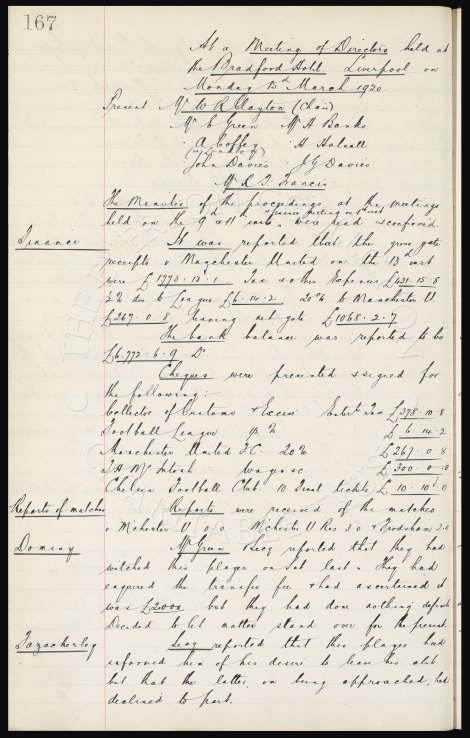 167
At a Meeting of Directors held at
the Bradford Hotel Liverpool on
Monday 15th March 1920.
Present Mr W R Clayton (Chair)
Mr E Green Mr A Banks
" A Coffey " H Halsall
John Davies " J G Davies
Mr R T Francis
The Minutes of the proceedings at the meetings
held on the 9th & 11th inst were read & confirmed.
Finance It was reported that the gross gate
receipts v Manchester United on the 13 inst
were £1770.13.1 Tax & other Expenses £431.15.8
½% due to League £6.14.2 20% to Manchester U
£267.0.8 leaving net gate £1068.2.7
The bank balance was reported to be
£6,772.6.9 Dr
Cheques were presented & signed for
the following:
Collector of Customs & Excise Entert Tax £378.10.8
Football League ½% £6.14.2
Manchester United F.C. 20% £267.0.8
T H McIntosh wages &c £300.0.0
Chelsea Football Club 10 Final tickets £10.10.0
Reports of matches Reports were received of the matches
v Mchester U 0.0. Mchester U Res 3.0 & Frodsham 2.0
Dominy Mr Green & Secy reported that they had
watched this player on Sat last & they had
enquired the transfer fee & had ascertained it
was £2000 but they had done nothing definite
Decided to let matter stand over for the present.
Fazackerley Secy reported that this player had
informed him of his desire to leave his club
but that the latter, on being approached, had
declined to part.